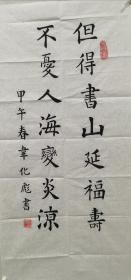 但得書山延福壽
不憂人海變炎涼
甲午春韋化彪書